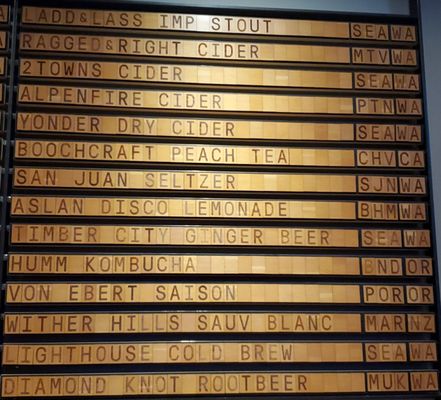 LADD&LASS IMP STOUT SEA WA
RAGGED&RIGHT CIDER MTV WA
2TOWNS CIDER SEA WA
ALPENFIRE CIDER PTN WA
YONDER DRY CIDER SEA WA
BOOCHCRAFT PEACH TEA CHV CA
SAN JUAN SELTZER SJN WA
ASLAN DISCO LEMONADE BHM WA
TIMBER CITY GINGER BEER SEA WA
HUMM KOMBUCHA BND OR
VON EBERT SAISON POR OR
WITHER HILLS SAUV BLANC MAR NZ
LIGHTHOUSE COLD BREW SEA WA
DIAMOND KNOT ROOTBEER MUK WA